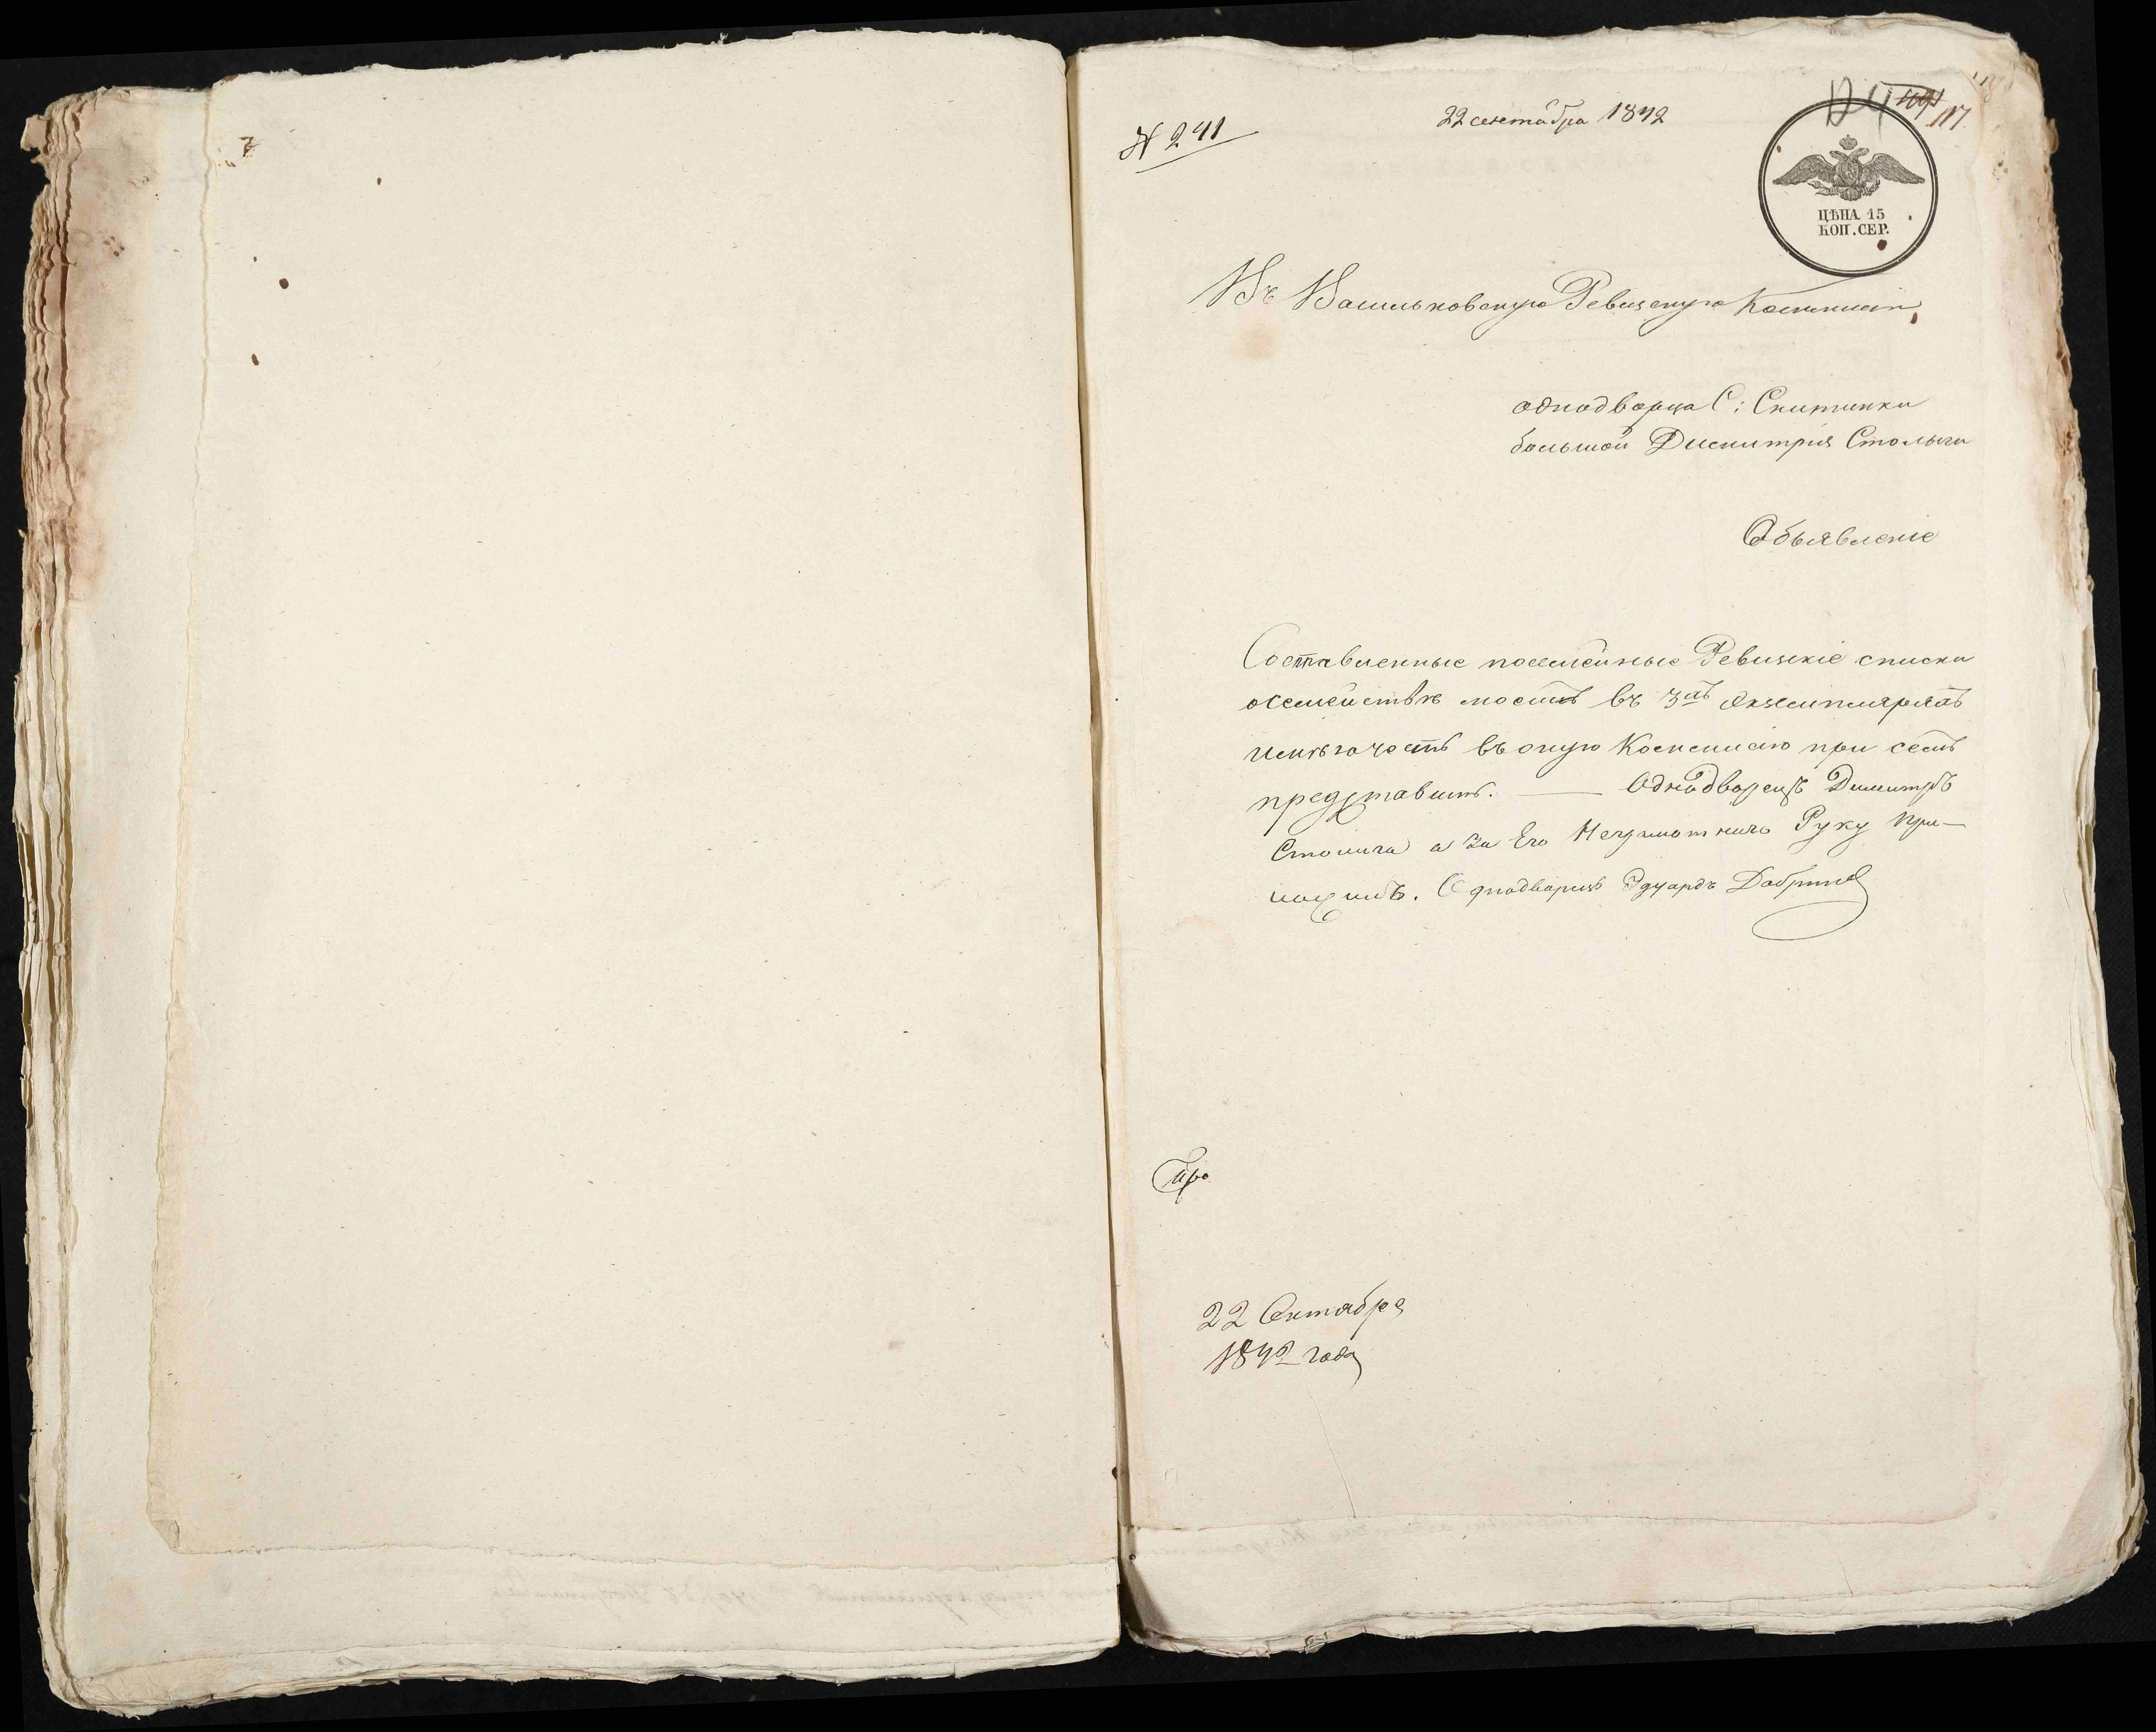 № 241
22 сентября 1842
124
117
ЦѢНА 15
КОП. СЕР.
Въ Васильковскую Ревизскую Коммисію
однодворца С: Снитинки
большой Димитрія Столыги
Объявленіе
Составленные посемейные Ревизкіе списки
о семействѣ моемъ въ 3хъ Экземплярахъ
имѣю честь въ оную Коммисію при семъ
представить. — Однодворецъ Димитръ
а за Его Неграмотнаго Руку При-
ложилъ. Однодворецъ Эдуардъ
22 Сентября
1842 года